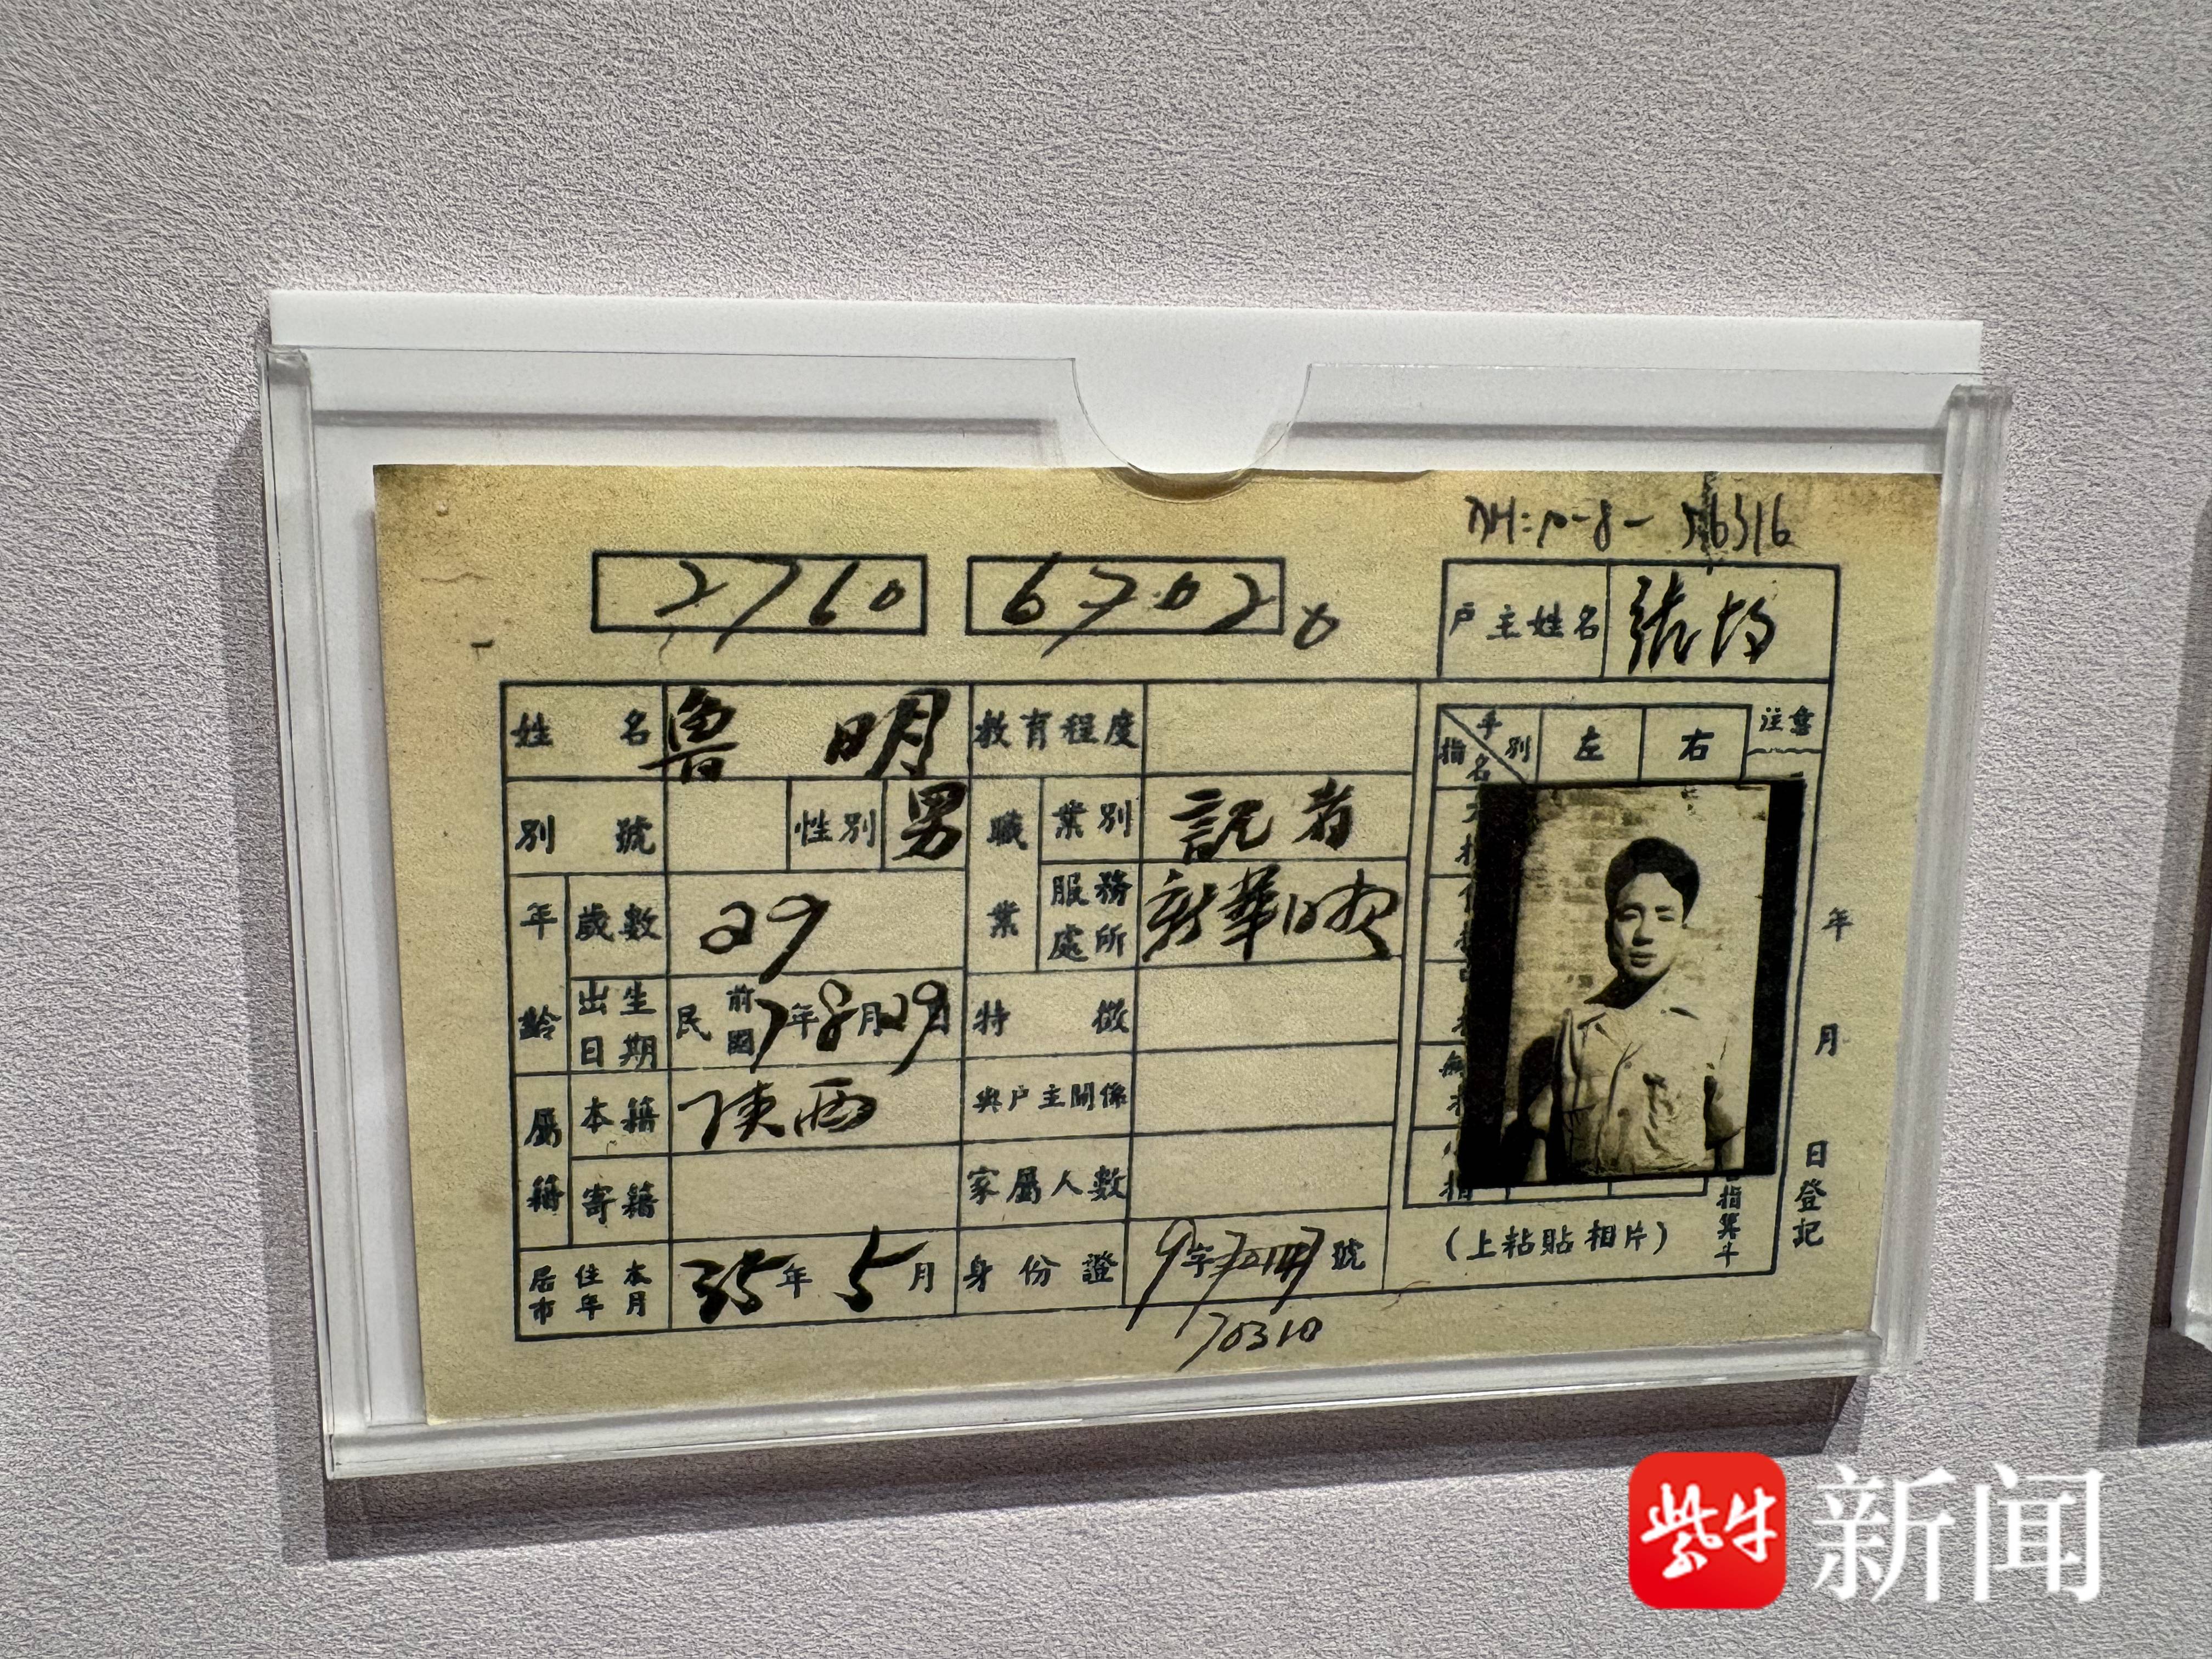 2760 67020
户主姓名
姓名 魯明 教育程度
別號 性別 男 職業 業別 記者
服務處所 新華日報
年齡 歲數 29
出生日期 民前國7年8月29日 特徵
屬籍 本籍 陝西 與户主關係
寄籍 家屬人數
居住本市年月 35年5月 身份證 號
70310
手別 指名 左 右 注意
(上粘貼相片)
年 月 日登記
紫牛 新闻